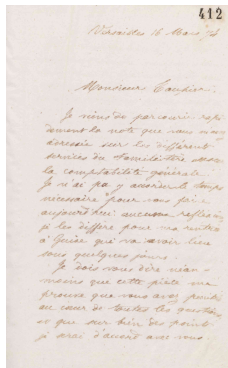 412
Versailles 16 Mars 74
Monsieur
Je viens de parcourir rapi-
dement la note que vous m'avez
adressée sur les différents
services du Familistère, avec
la comptabilité générale.
Je n'ai pas pu y accorder le temps
nécessaire pour vous faire
aujourd'hui aucune réflexion,
je les diffère pour ma rentrée
à Guise qui va avoir lieu
sous quelques jours.
Je dois vous dire néan-
moins que cette pièce me
prouve que vous avez pénétré
au cœur de toutes les questions
et que sur bien des points
je serai d'accord avec vous.